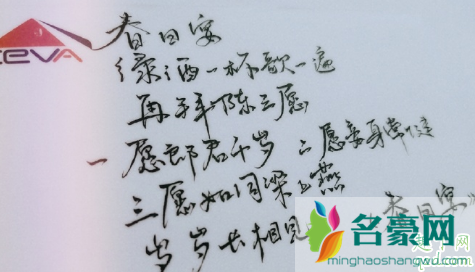 CEVA
春日宴
绿酒一杯歌一遍
再拜陈三愿
一愿郎君千岁 二愿妾身常健
三愿如同梁上燕
岁岁长相见 《春日宴》
名豪网
minghaoshangwu.com